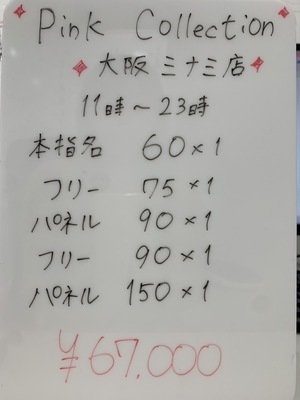 Pink Collection
大阪ミナミ店
11時～23時
本指名 60×1
フリー 75×1
パネル 90×1
フリー 90×1
パネル 150×1
¥67.000